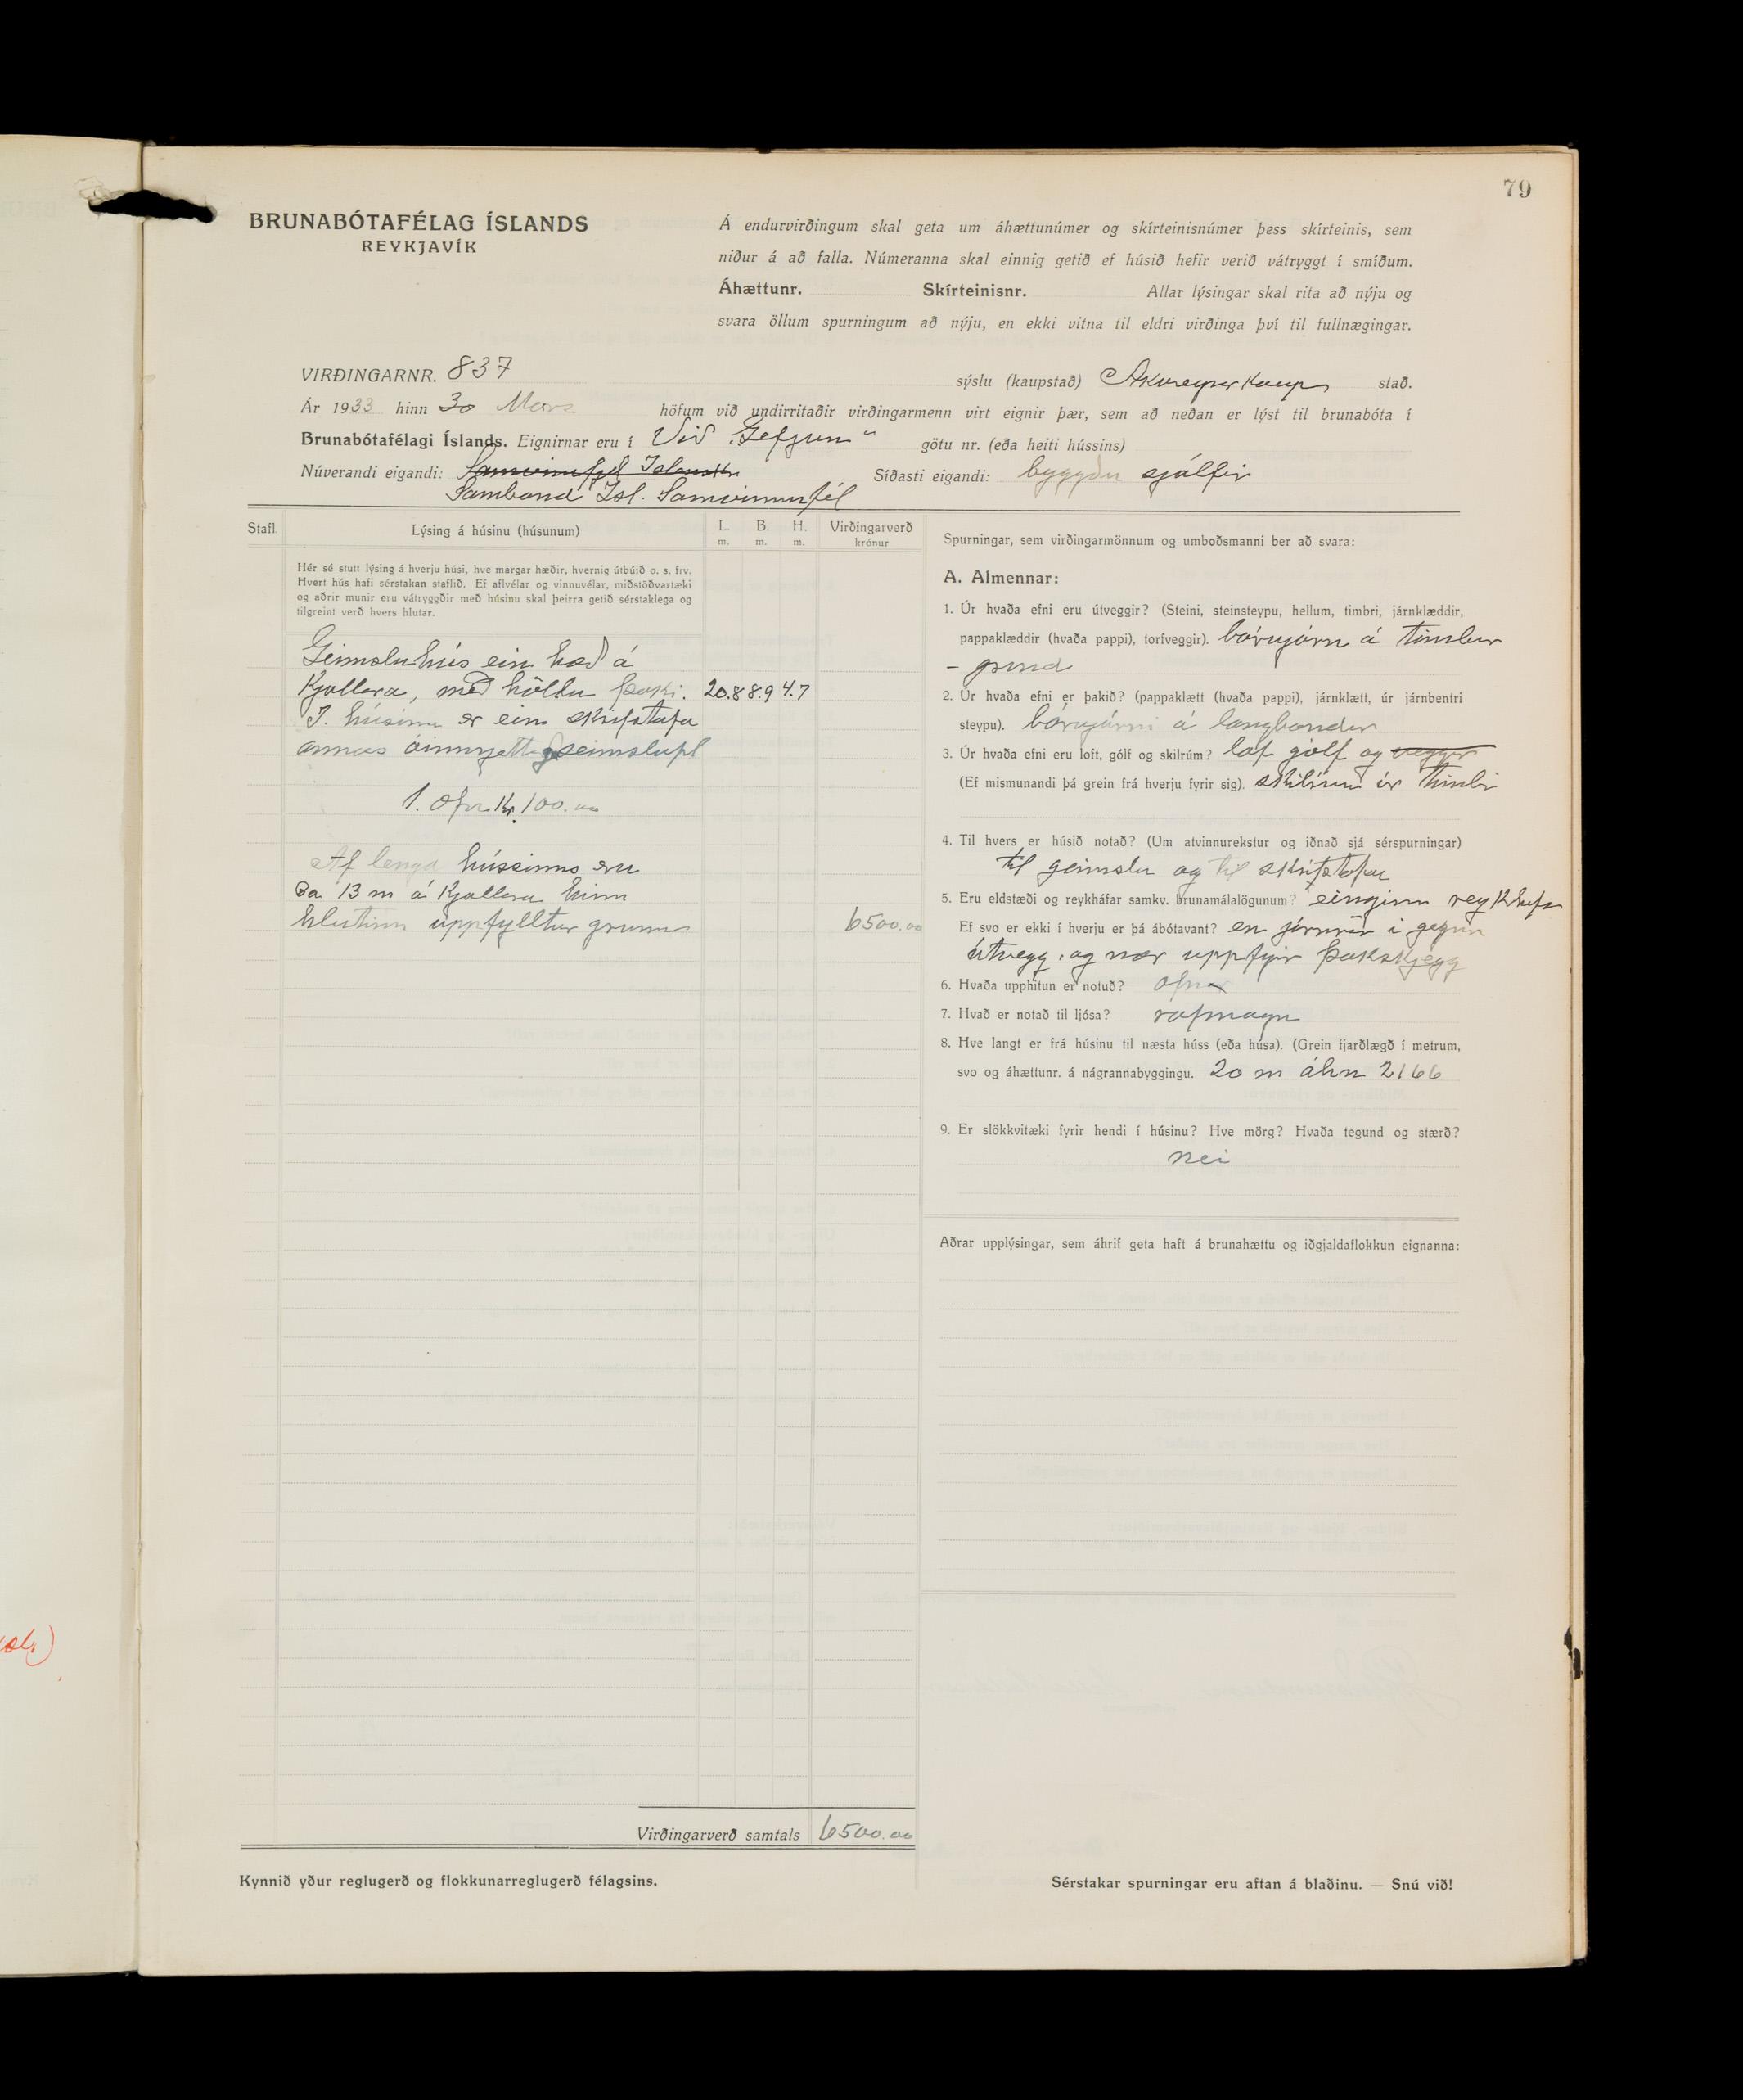 79
BRUNABÓTAFÉLAG ÍSLANDS
REYKJAVÍK
Á endurvirðingum skal geta um áhættunúmer og skírteinisnúmer þess skírteinis, sem
niður á að falla. Númeranna skal einnig getið ef húsið hefir verið vátryggt í smíðum.
Áhættunr. Skírteinisnr. Allar lýsingar skal rita að nýju og
svara öllum spurningum að nýju, en ekki vitna til eldri virðinga því til fullnægingar.
VIRÐINGARNR. 837 sýslu (kaupstað) Akureyrar kaup stað.
Ár 1933 hinn 30 Mars höfum við undirritaðir virðingarmenn virt eignir þær, sem að neðan er lýst til brunabóta í
Brunabótafélagi Íslands. Eignirnar eru í Við „Gefjun“ götu nr. (eða heiti hússins)
Núverandi eigandi: Síðasti eigandi: byggðu sjálfir
Samband Isl. Samvinnufél
Stafl. Lýsing á húsinu (húsunum) L. m. B. m. H. m. Virðingarverð krónur
Hér sé stutt lýsing á hverju húsi, hve margar hæðir, hvernig útbúið o. s. frv.
Hvert hús hafi sérstakan staflið. Ef aflvélar og vinnuvélar, miðstöðvartæki
og aðrir munir eru vátryggðir með húsinu skal þeirra getið sérstaklega og
tilgreint verð hvers hlutar.
Geimsluhús ein hæð á
Kjallara, með höllu þaki. 20.8 8.9 4.7
I. húsinu er ein skrifstofa
annars óinnrjettað geimslupl
1. Ofn Kr. 100.00
Af lengd hússinns eru
Ca 13 m á Kjallara hinn
hlutinn uppfylltur grunnur 6500.00
Virðingarverð samtals 6500.00
Kynnið yður reglugerð og flokkunarreglugerð félagsins.
Spurningar, sem virðingarmönnum og umboðsmanni ber að svara:
A. Almennar:
1. Úr hvaða efni eru útveggir? (Steini, steinsteypu, hellum, timbri, járnklæddir,
pappaklæddir (hvaða pappi), torfveggir). bárujárn á timbur
- grind
2. Úr hvaða efni er þakið? (pappaklætt (hvaða pappi), járnklætt, úr járnbentri
steypu). bárujárni á langbondur
3. Úr hvaða efni eru loft, gólf og skilrúm? lof gólf og veggir
(Ef mismunandi þá grein frá hverju fyrir sig). skilrúm úr timbri
4. Til hvers er húsið notað? (Um atvinnurekstur og iðnað sjá sérspurningar)
til geimslu og til skrifstofu
5. Eru eldstæði og reykháfar samkv. brunamálalögunum? einginn reykháfur
Ef svo er ekki í hverju er þá ábótavant? en járnrör í gegnum
útvegg, og nær uppfyrir þakskjegg
6. Hvaða upphitun er notuð? Ofnar
7. Hvað er notað til ljósa? rafmagn
8. Hve langt er frá húsinu til næsta húss (eða húsa). (Grein fjarðlægð í metrum,
svo og áhættunr. á nágrannabyggingu. 20 m áhn 2166
9. Er slökkvitæki fyrir hendi í húsinu? Hve mörg? Hvaða tegund og stærð?
nei
Aðrar upplýsingar, sem áhrif geta haft á brunahættu og iðgjaldaflokkun eignanna:
Sérstakar spurningar eru aftan á blaðinu. — Snú við!